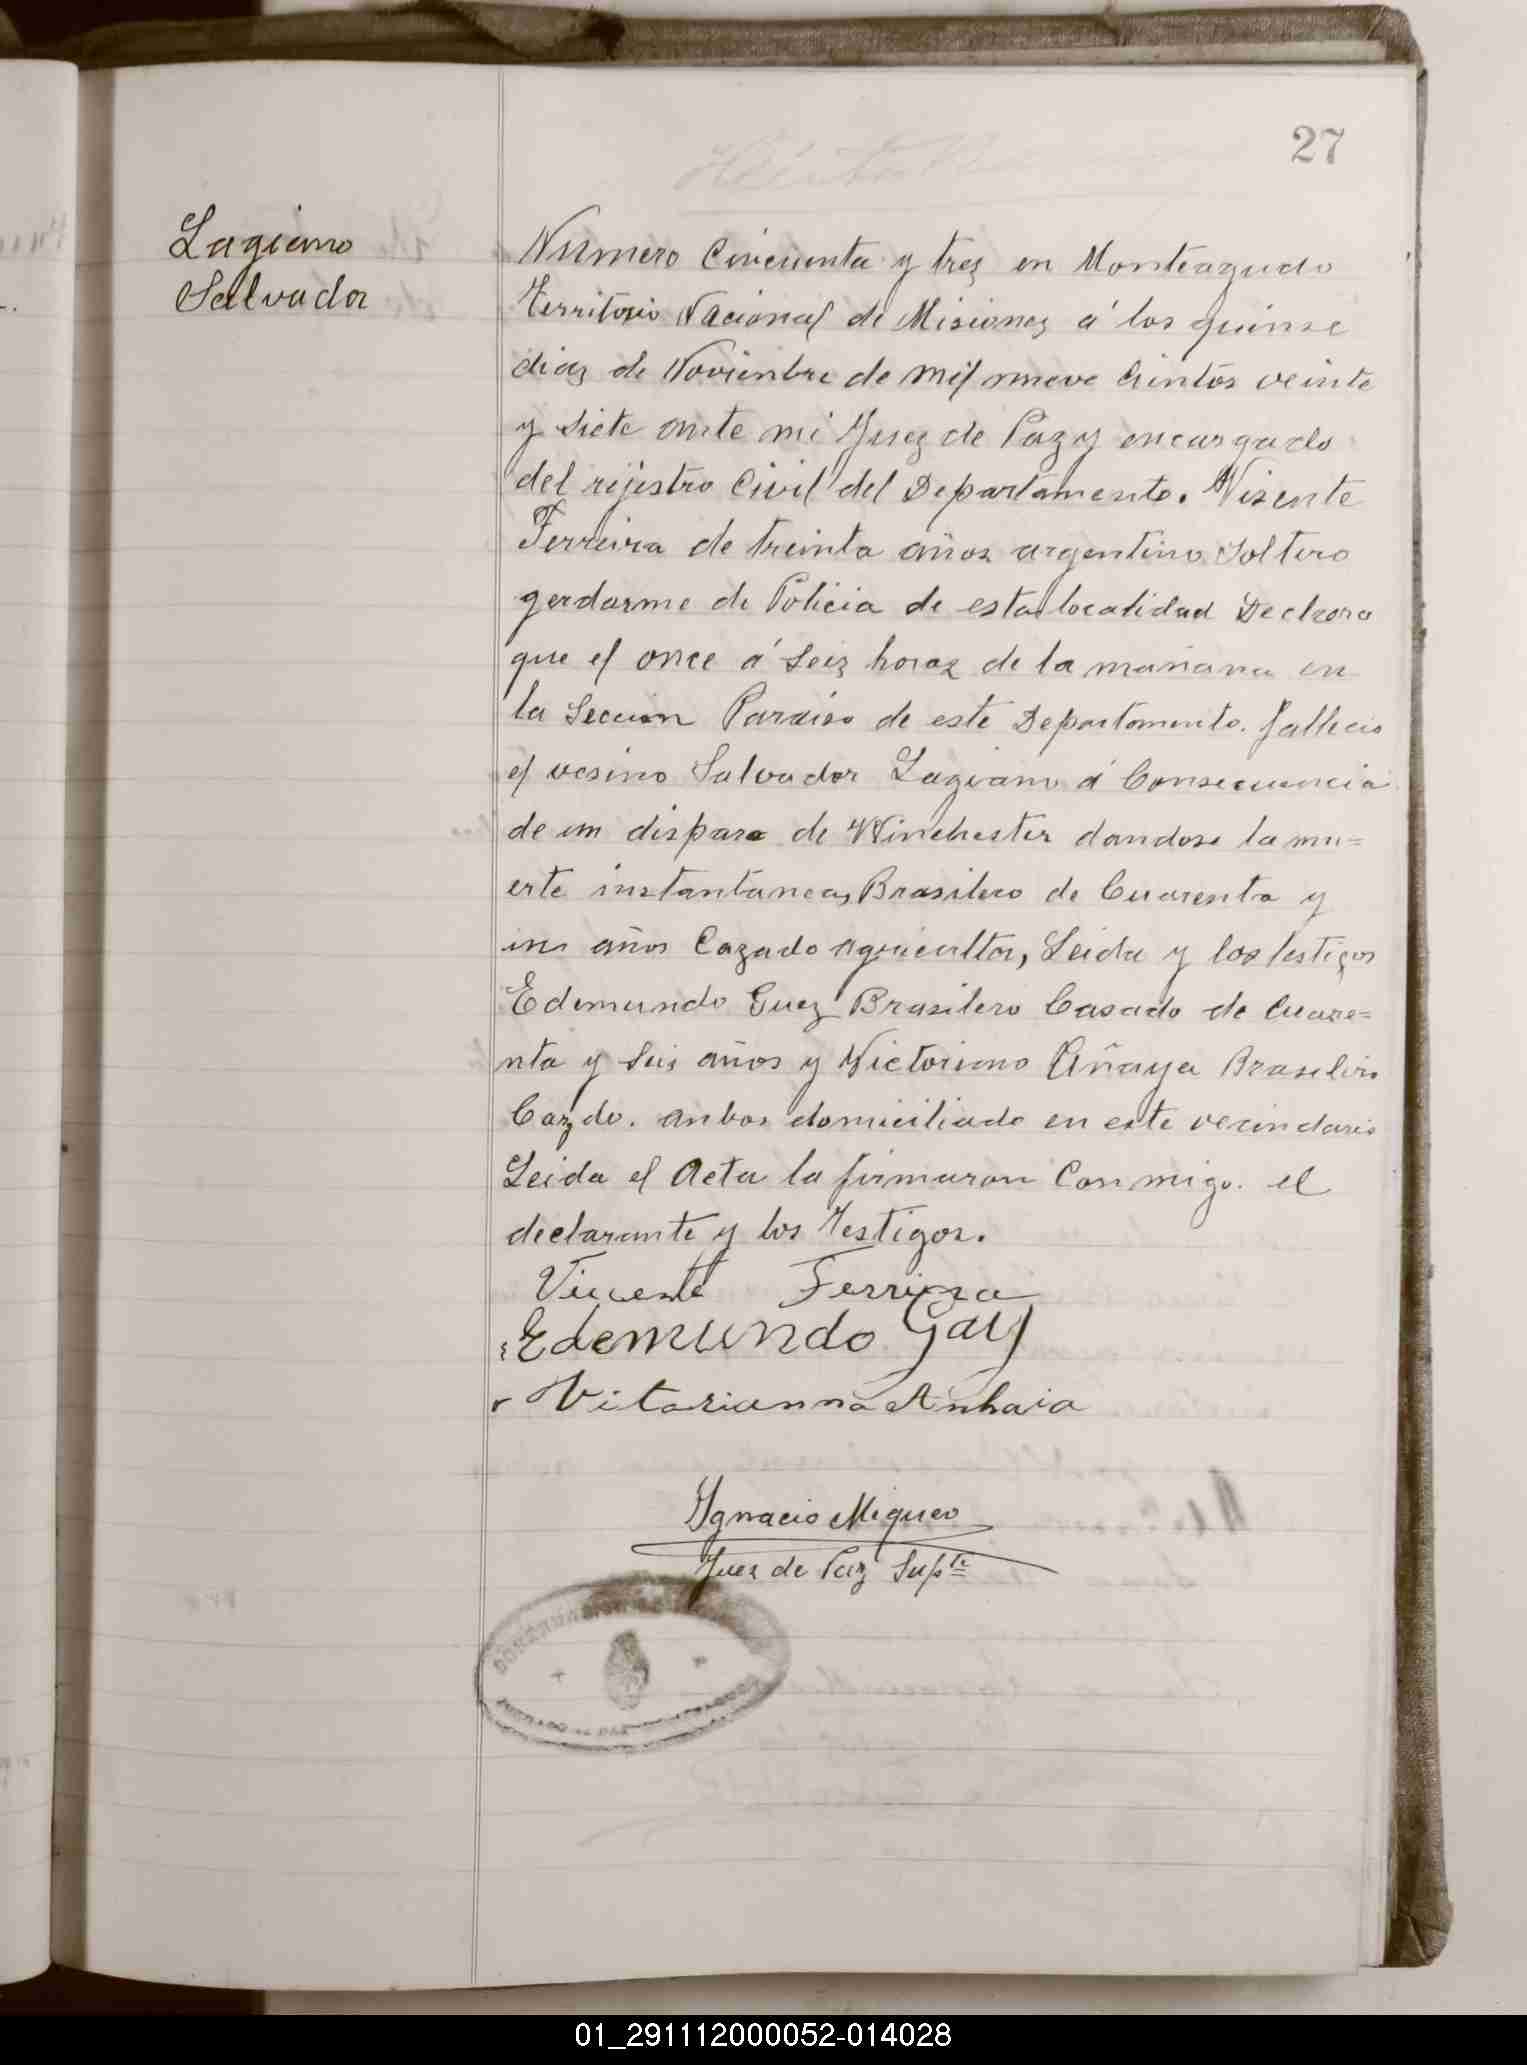 27
Lagiano
Salvador
Numero Cincuenta y tres en Monteagudo
Territorio Nacional de Misiones á los quinse
dias de Novienbre de mil nueve cintos veinte
y siete ante mi Juez de Paz y encargado
del rejistro Civil del Departamento. Visente
Ferreira de treinta años argentino Soltero
gerdarme de Policia de esta localidad Declrara
que el once á seis horas de la mañana en
la Seccion Paraiso de este Departamento. fallecio
el vesino Salvador Lagiano á Consecuencia
de un disparo de Winchester dandose la mu=
erte instantanea, Brasilero de Cuarenta y
un años Cazado agricultor, Leida y los testigos
Edemundo Guez Brasilero Casado de Cuare=
nta y seis años y Victoriano Añaya Brasilero
Cazdo. anbos domiciliado en este vecindario
Leida el Acta la firmaron Conmigo. el
declarante y los Testigos.
Vicente Ferreira
Edemundo Gaus
Vitorianna Anhaia
Ygnacio Migueo
Juez de Paz Supte
01_291112000052-014028